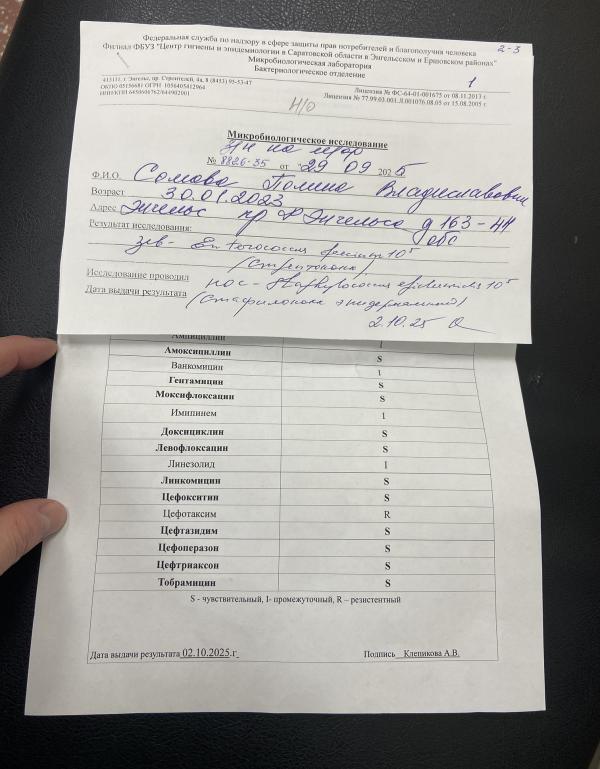 Федеральная служба по надзору в сфере защиты прав потребителей и благополучия человека
Филиал ФБУЗ "Центр гигиены и эпидемиологии в Саратовской области в Энгельсском и Ершовском районах"
2-3
Микробиологическая лаборатория
Бактериологическое отделение
1
413111, г. Энгельс, пр. Строителей, 4а, 8 (8453) 95-53-47
ОКПО 05156681 ОГРН 1056405412964
ИНН/КПП 6450606762/644902001
Лицензия № ФС-64-01-001675 от 08.11.2013 г.
Лицензия № 77.99.03.001.Л.001076.08.05 от 15.08.2005 г.
Н/О
Микробиологическое исследование
№ 8826-35 от "29 09 2025
Ф.И.О. Сомова Полина Владиславовна
Возраст 30.01.2023
Адрес Энгельс пр Ф Энгельса д 163-44
Результат исследования:
зев- Enterococcus faecium 10⁵
(стрептококк)
Исследование проводил
нос- Staphylococcus epidermidis 10⁵
Дата выдачи результата (стафилококк эпидермальный)
2.10.25
Ампициллин I
Амоксициллин S
Ванкомицин I
Гентамицин S
Моксифлоксацин S
Имипинем I
Доксициклин S
Левофлоксацин S
Линезолид I
Линкомицин S
Цефокситин S
Цефотаксим R
Цефтазидим S
Цефоперазон S
Цефтриаксон S
Тобрамицин S
S - чувствительный, I- промежуточный, R – резистентный
Дата выдачи результата 02.10.2025.г
Подпись Клепикова А.В.